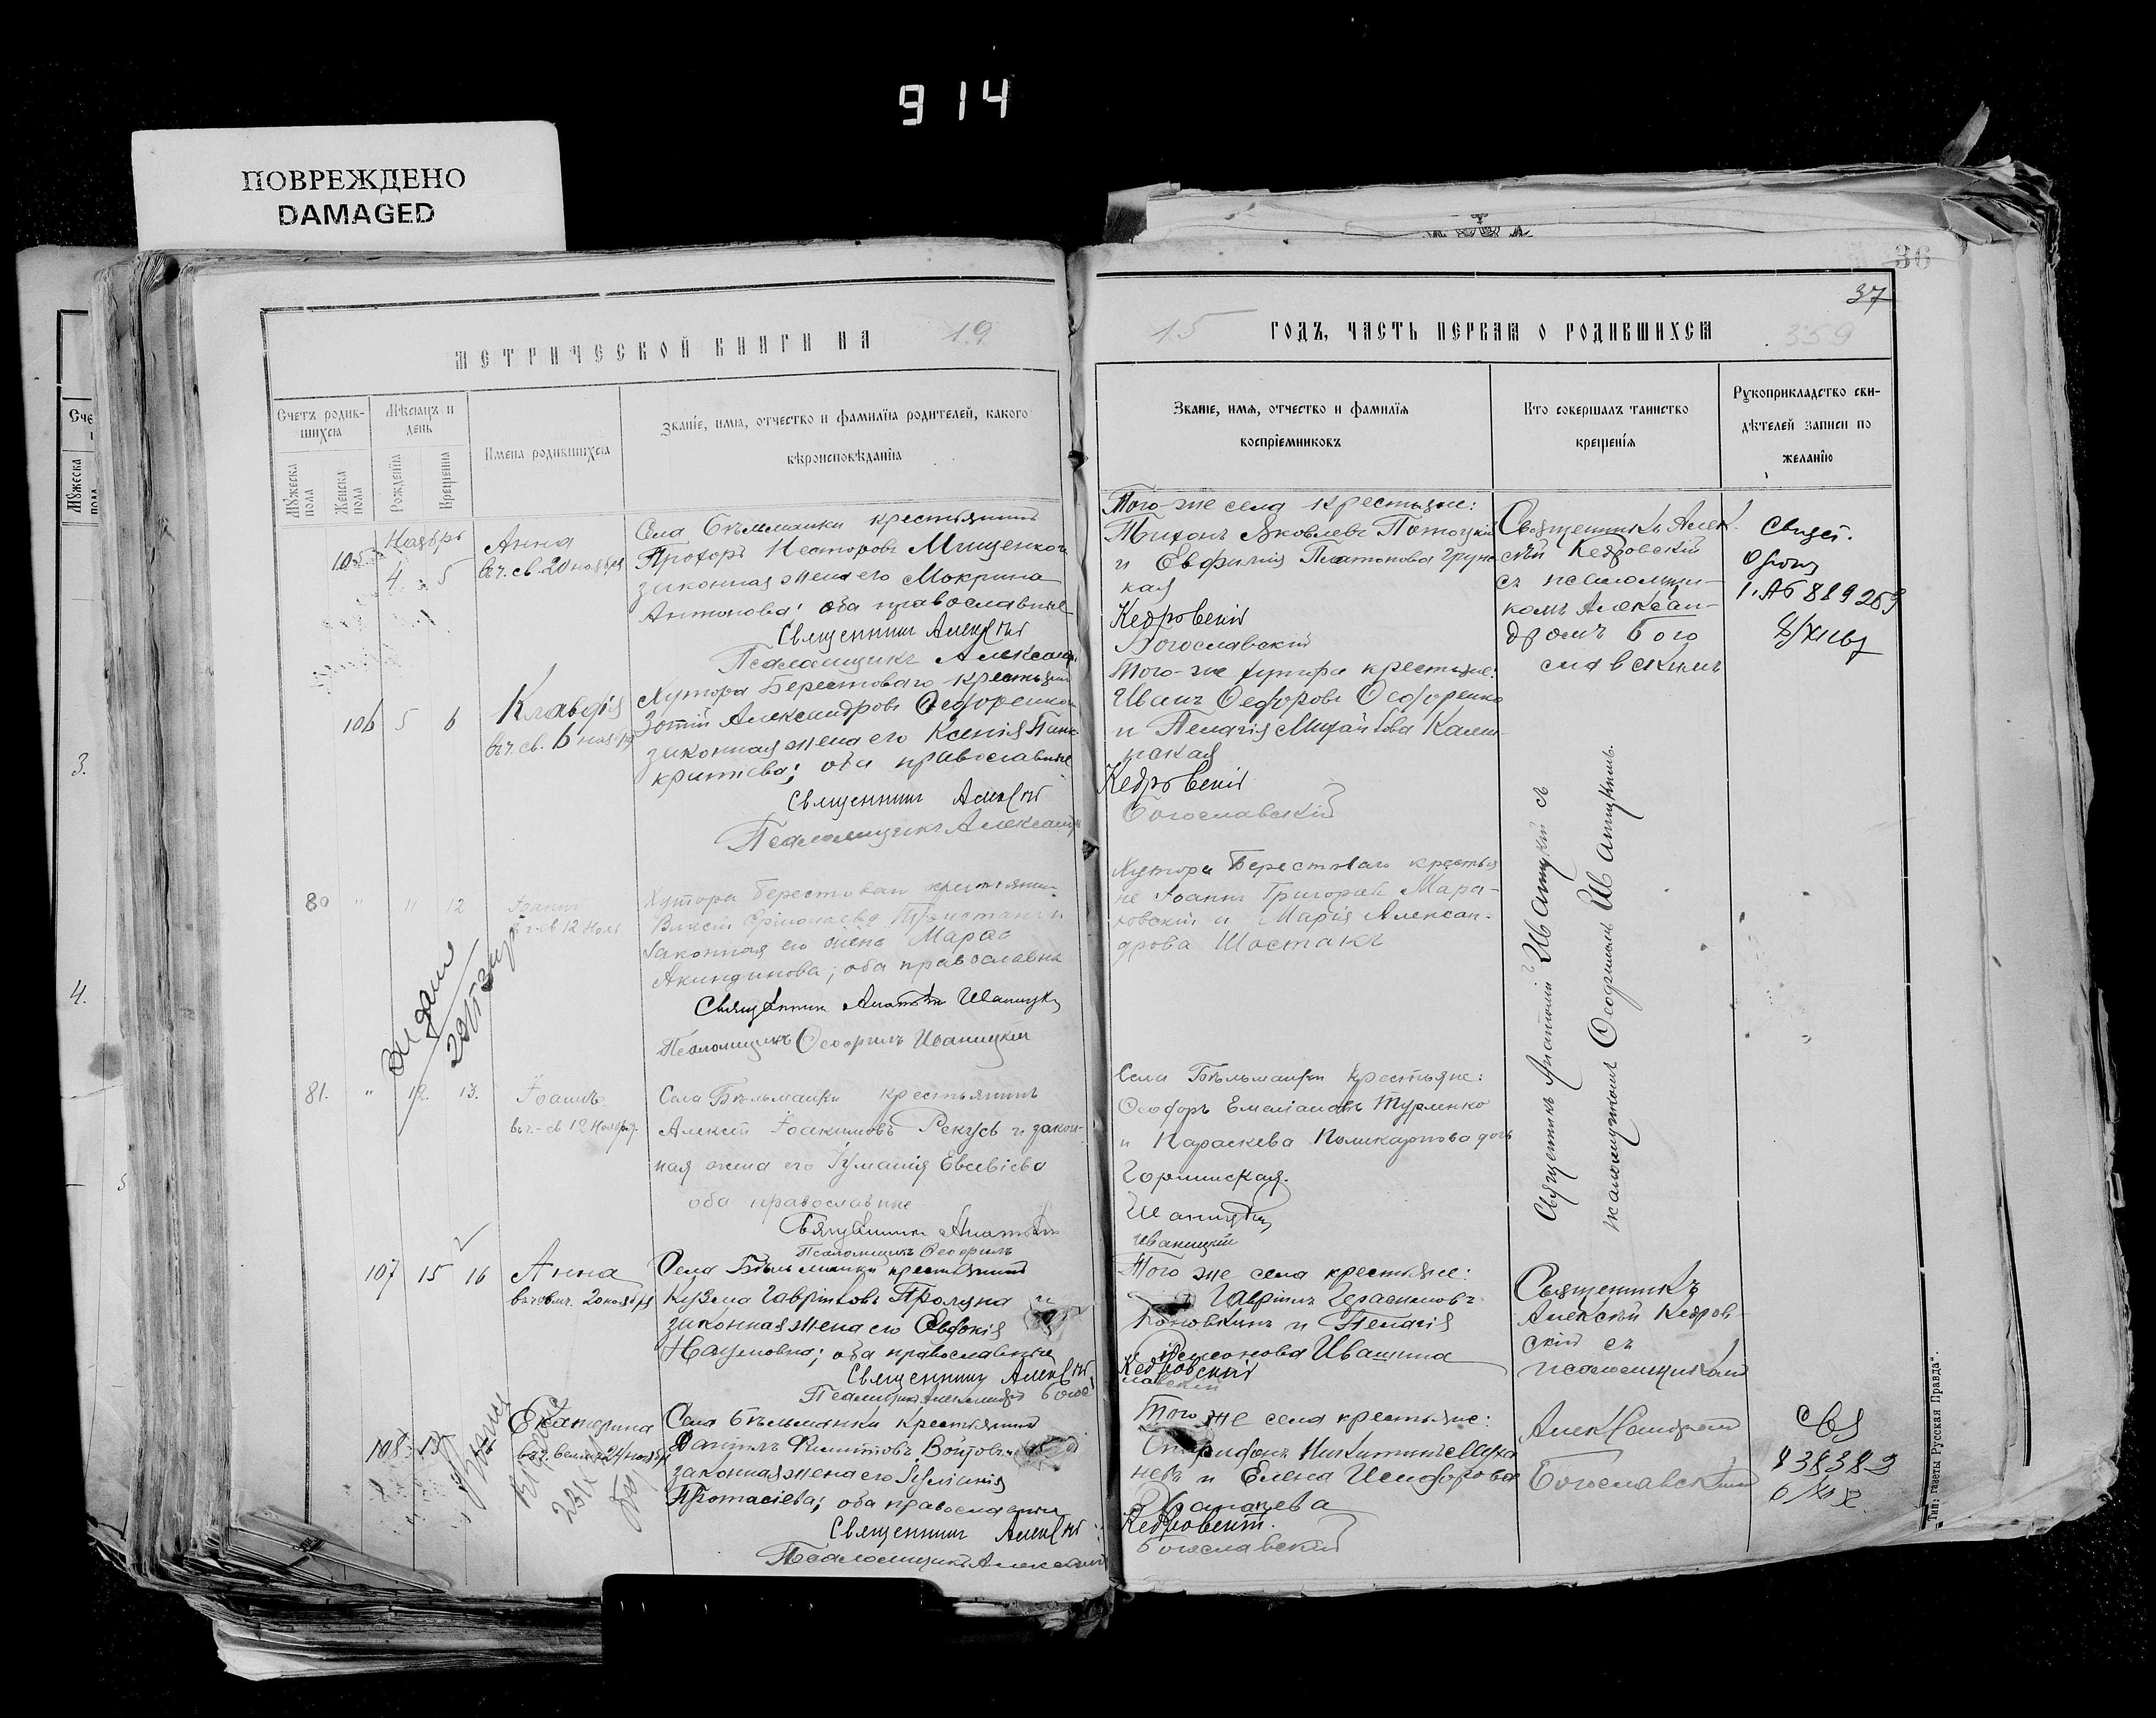 914
ПОВРЕЖДЕНО
DAMAGED
36
37
МЕТРИЧЕСКОЙ КНИГИ НА 19
15 ГОДЪ, ЧАСТЬ ПЕРВАЯ О РОДИВШИХСЯ 359
Счетъ родив-
шихся
Мѣсяцъ и
день
Имена родившихся
Званіе, имя, отчество и фамилія родителей, какого
вѣроисповѣданія
Мужеска пола
Женска пола
Рожденія
Крещенія
Званіе, имя, отчество и фамилія
воспріемниковъ
Кто совершалъ таинство
крещенія
Рукоприкладство сви-
дѣтелей записи по
желанію
Ноябрь
105 4 5
Анна
вч. св. 20 ноября
Села Бѣльманки крестьянинъ
Прохоръ Несторовъ Мищенко и
законная жена его Мокрина
Антонова; оба православные
Священникъ Алексѣй
Псаломщикъ Александръ
Того-же села крестьяне:
Тихонъ Яковлевъ Потоцкій
и Евфимія Платонова
кая
Кедровскій
Богославскій
Священникъ Алек-
сѣй Кедровскій
съ псаломщи-
комъ Алексан-
дромъ Бого
славскимъ
106 5 6
Клавдія
вч. св. 6 ноября
Хутора Берестоваго крестьянинъ
Зотій Александровъ Ѳедоренко и
законная жена его Ксенія Панк-
кратіева; оба православные
Священникъ Алексѣй
Псаломщикъ Александръ
Того-же хутора крестьяне:
Иванъ Ѳедоровъ Ѳедоренко
и Пелагія Михайлова Калин-
нская
Кедровскій
Богославскій
80 " 11 12
Іоаннъ
вч. св 12 Нояб
Хутора Берестоваго крестьянин
законная его жена Марѳа
Акиндинова; оба православны
Священник Анатолій Иваницкій
Псаломщикъ Ѳеофилъ Иваницкій
Хутора Берестоваго крестья
не Іоаннъ Григорьев Мара-
ховскій и Марія Алексан-
дрова Шостакъ
Священникъ Анатолій Иваницкій съ
псаломщикомъ Ѳеофиломъ Иваницкимъ.
81. " 12. 13.
Іоаннъ.
вч.-св 12 Ноября.
Села Бѣльманки крестьянинъ
Алексій Іоакимовъ Рекусъ и закон-
ная жена его Іуліанія Евсевіева
оба православные
Священникъ Анатолій
Псаломщикъ Ѳеофилъ
Села Бѣльманки крестьяне:
Ѳеодоръ Емеліановъ Турленко
и Параскева Поликарпова дочь
Горлинская.
Иваницкій
Иваницкій
107 15 16
Анна
Села Бѣльманки крестьянинъ
Кузьма Гавріиловъ Пролуна и
законная жена его Евдокія
Наумовна; оба православные
Священникъ Алексѣй
Псаломщикъ Александръ Бого
Того же села крестьяне:
Гавріилъ Герасимовъ
Коновкинъ и Пелагія
Симонова Ивашина
Кедровскій
славскій
Священникъ
Алексѣй Кедров-
скій съ
псаломщикомъ
Александромъ
Богославскимъ
108
Екатерина
Села Бѣльманки крестьянинъ
Даніилъ Филипповъ Войтовъ и
законная жена его Іуліанія
Протасіева; оба православны
Священникъ Алексѣй
Псаломщикъ Александръ
Того же села крестьяне:
Спиридонъ Никитинъ
невъ и Елена Исидорова
Кедровскій.
Богославскій
838383
3.
4.
Тип. газеты „Русская Правда“.